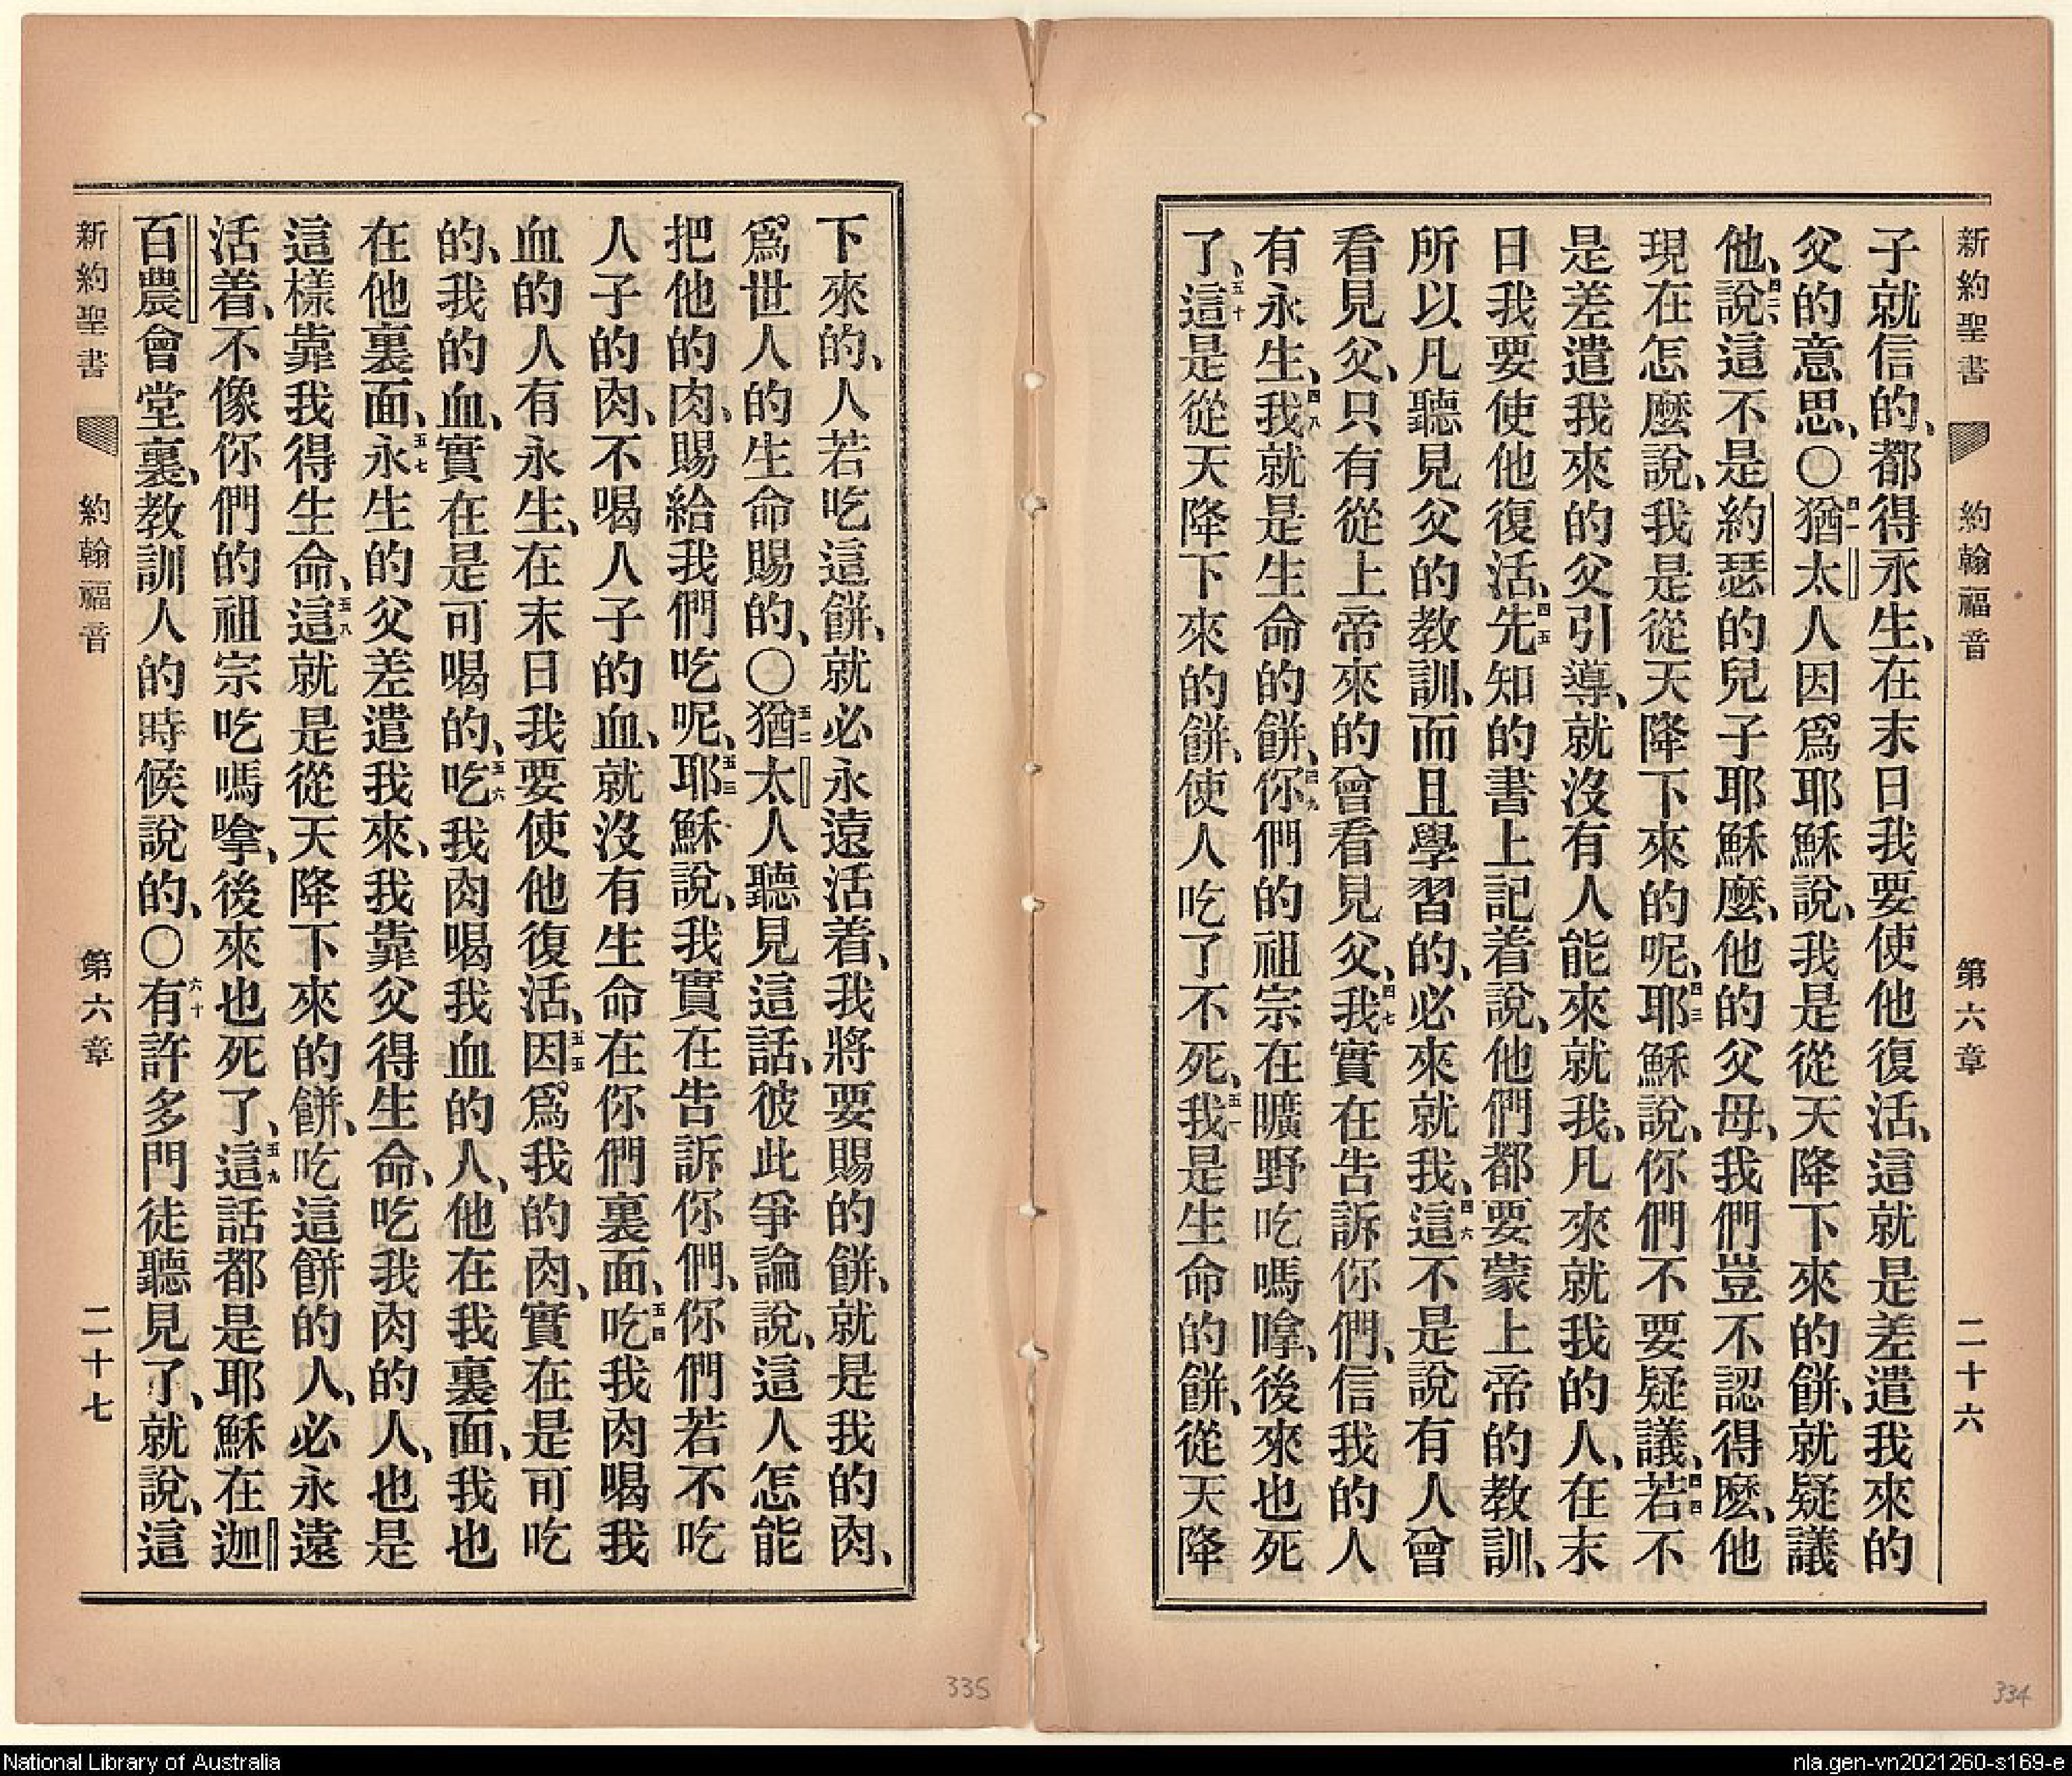 新約聖書 約翰福音 第六章 二十六
子就信的、都得永生、在末日我要使他復活、這就是差遣我來的
父的意思、〇四一猶太人因爲耶穌說、我是從天降下來的餅、就疑議
他、四二說這不是約瑟的兒子耶穌麼、他的父母、我們豈不認得麼、他
現在怎麼說、我是從天降下來的呢、四三耶穌說、你們不要疑議、四四若不
是差遣我來的父引導、就沒有人能來就我、凡來就我的人、在末
日我要使他復活、四五先知的書上記着說、他們都要蒙上帝的教訓、
所以凡聽見父的教訓、而且學習的、必來就我、四六這不是說有人曾
看見父、只有從上帝來的曾看見父、四七我實在告訴你們、信我的人
有永生、四八我就是生命的餅、四九你們的祖宗在曠野吃嗎嗱、後來也死
了、五十這是從天降下來的餅、使人吃了不死、五一我是生命的餅、從天降
334
下來的、人若吃這餅、就必永遠活着、我將要賜的餅、就是我的肉、
爲世人的生命賜的、〇五二猶太人聽見這話、彼此爭論說、這人怎能
把他的肉、賜給我們吃呢、五三耶穌說、我實在告訴你們、你們若不吃
人子的肉、不喝人子的血、就沒有生命在你們裏面、五四吃我肉喝我
血的人有永生、在末日我要使他復活、五五因爲我的肉、實在是可吃
的、我的血、實在是可喝的、五六吃我肉喝我血的人、他在我裏面、我也
在他裏面、五七永生的父差遣我來、我靠父得生命、吃我肉的人、也是
這樣靠我得生命、五八這就是從天降下來的餅、吃這餅的人、必永遠
活着、不像你們的祖宗吃嗎嗱、後來也死了、五九這話都是耶穌在迦
百農會堂裏、教訓人的時候說的、〇六十有許多門徒聽見了、就說、這
新約聖書 約翰福音 第六章 二十七
335
National Library of Australia
nla.gen-vn2021260-s169-e